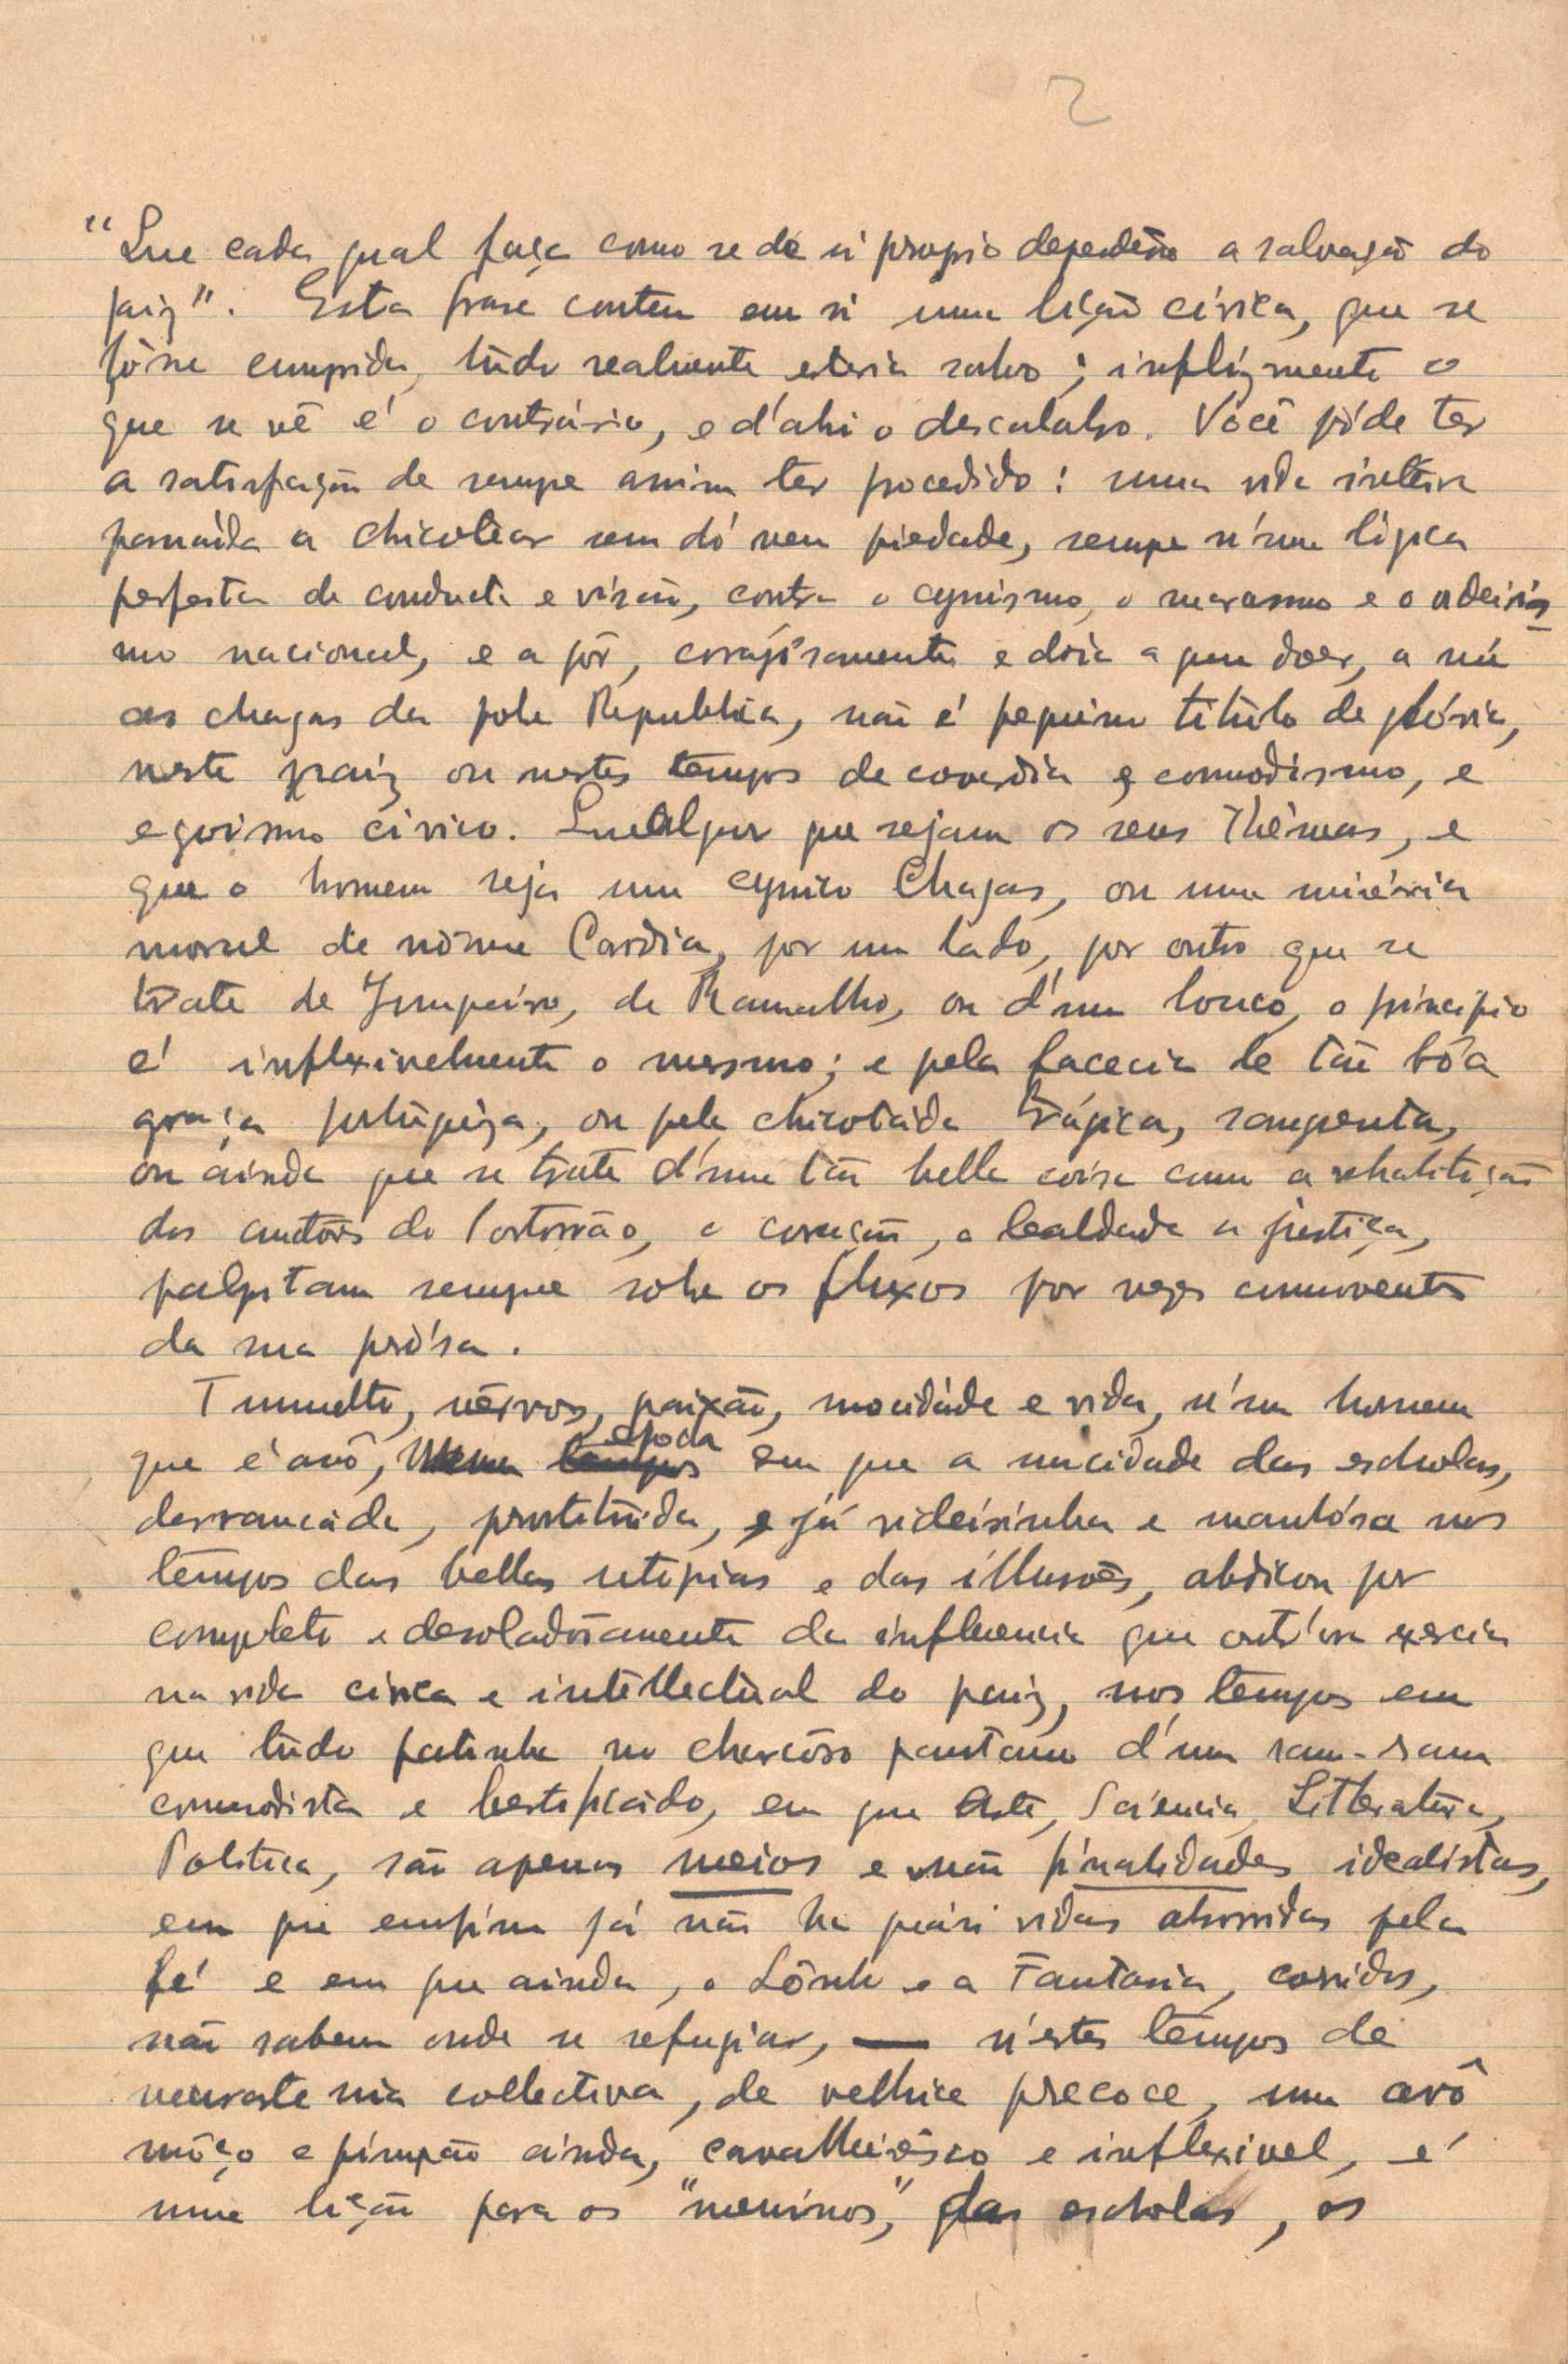 2
"Que cada qual faça como se de si proprio dependêsse a salvação do
paiz". Esta frase contem em si uma lição cívica, que se
fôsse cumprida, tudo realmente estaria salvo; infelizmente o
que se vê é o contrário, e d'ahi o descalabro. Você póde ter
a satisfação de sempre assim ter procedido: uma vida inteira
passada a chicotear sem dó nem piedade, sempre n'uma lógica
perfeita de conducta e visão, contra o cynismo, o marasmo e o videiris
mo nacional, e a pôr, corajósamente e dôa a quem doer, a nú
as chagas da pobre Republica, não é pequeno titulo de glória,
neste paiz ou nestes tempos de covardia e commodismo, e
egoismo civico. Quaesquer que sejam os seus thêmas, e
que o homem seja um cynico Chagas, ou uma miséria
moral de nôme Cardia, por um lado, por outro que se
trate de Junqueiro, de Ramalho, ou d'um louco, o principio
é inflexivelmente o mesmo; e pela facecia de tão bôa
graça portugueza, ou pela chicotada trágica, sangrenta,
ou ainda que se trate d'uma tão bella coisa como a rehabilitação
dos auctôres do , o coração, a lealdade a justiça,
palpitam sempre sobre os fluxos por vezes commoventes
da sua prósa.
Tumulto, nêrvos, paixão, mocidade e vida, n'um homem
que é avô, n'uma epoca em que a mocidade das escholas,
derrancada, prostituida, e já videirinha e manhósa nos
tempos das bellas utopias e das illusões, abdicou por
completo e desoladôramente da influencia que outr'ora exercia
na vida civica e intellectual do paiz, nos tempos em
que tudo patinha no charcôso pantano d'um ram-ram
commodista e bestificado, em que Arte, Sciencia, Litteratura,
Politica, são apenas meios e não finalidades idealistas,
em que emfim já não ha quasi vidas absorvidas pela
fé e em que ainda, o Sônho e a Fantasia, corridos,
não sabem onde se refugiar, — n'estes tempos de
neurastenia collectiva, de velhice precoce, um avô
môço e pimpão ainda, cavalheirêsco e inflexivel, é
uma lição para os "meninos", das escholas, os